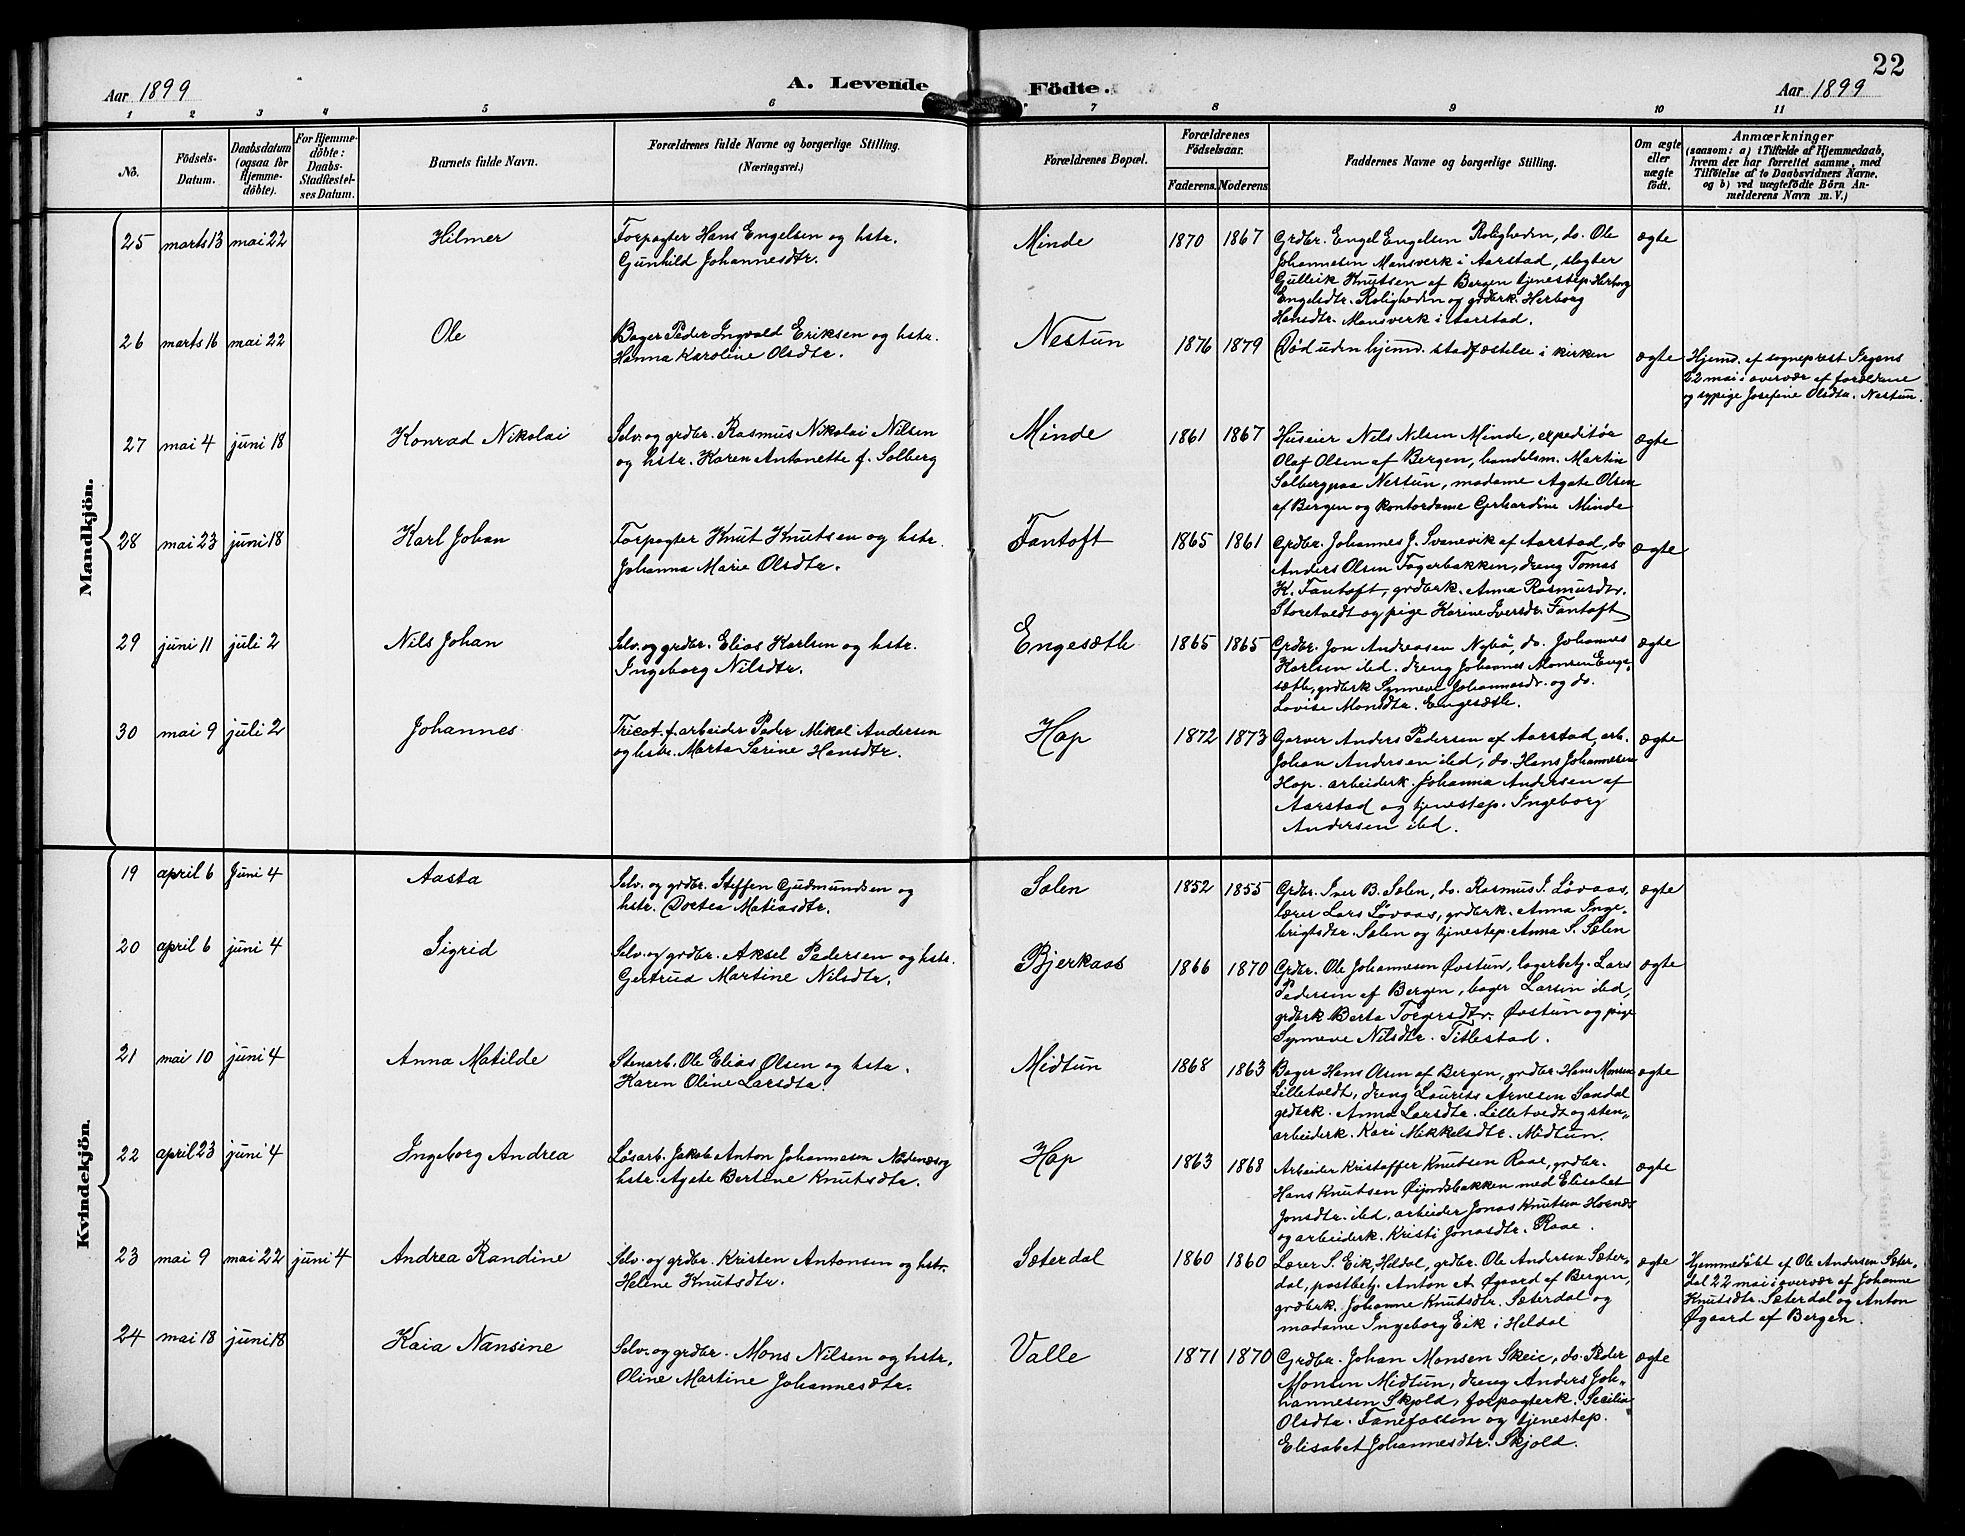 22
Aar 1899
A. Levende Födte.
Aar 1899
1 2 3 4 5 6 7 8 9 10 11
No.
Födsels-Datum.
Daabsdatum (ogsaa for Hjemme-döbte).
For Hjemme-döbte: Daabs-Stadfæstel-ses Datum.
Barnets fulde Navn.
Forældrenes fulde Navne og borgerlige Stilling. (Næringsvei.)
Forældrenes Bopæl.
Forældrenes Födselsaar.
Faderens. Moderens.
Faddernes Navne og borgerlige Stilling.
Om ægte eller uægte födt.
Anmærkninger
(saasom: a) i Tilfælde af Hjemmedaab,
hvem der har forrettet samme, med
Tilföielse af to Daabsvidners Navne.
og b) ved uægtefödte Börn An-
melderens Navn m. V.)
Mandkjön.
25 marts 13 mai 22 Hilmer
Forpagter Hans Engelsen og hstr.
Gunhild Johannesdtr.
Minde 1870 1867
Grdbr. Engel Engelsen Roligheden, do. Ole
Johannesen Mansverk i Aarstad, slagter
Gulleik Knutsen af Bergen tjenestep. Herborg
Engelsdtr. Roligheden og grdbrk. Herborg
Hansdtr. Mansverk i Aarstad.
ægte
26 marts 16 mai 22 Ole
Bager Peder Ingvald Eriksen og hstr.
Hanna Karoline Olsdtr.
Nestun 1876 1879
Död uden hjemd. stadfæstelse i kirken
ægte
Hjemd. af sogneprest Irgens
22 mai i overvær af forældrene
og sypige Josefine Olsdtr. Nestun.
27 mai 4 juni 18 Konrad Nikolai
Selv. og grdbr. Rasmus Nikolai Nilsen
og hstr. Karen Antonette f. Solberg
Minde 1861 1867
Huseier Nils Nilsen Minde, expeditör
Olaf Olsen af Bergen, handelsm. Martin
Solberg paa Nestun, madame Agate Olsen
af Bergen og kontordame Gerhardine Minde
ægte
28 mai 23 juni 18 Karl Johan
Forpagter Knut Knutsen og hstr.
Johanna Marie Olsdtr.
Fantoft 1865 1861
Grdbr. Johannes J. Svanevik af Aarstad, do
Anders Olsen Fagerbakken, dreng Tomas
K. Fantoft, grdbrk. Anna Rasmusdtr.
Storetvedt og pige Karine Iversdtr. Fantoft
ægte
29 juni 11 juli 2 Nils Johan
Selv. og grdbr. Elias Karlsen og hstr.
Ingeborg Nilsdtr.
Engesætle 1865 1865
Grdbr. Jon Andreasen Nybö, do. Johannes
Karlsen ibd. dreng Johannes Monsen Enge-
sætle, grdbrk Synneve Johannesdtr. og do.
Lovise Monsdtr. Engesætle.
ægte
30 mai 9 juli 2 Johannes
Tricot. f. arbeider Peder Mikal Andersen
og hstr. Marta Serine Hansdtr.
Hop 1872 1873
Garver Anders Pedersen af Aarstad, arb.
Johan Andersen ibd, do. Hans Johannesen
Hop. arbeiderk. Johanna Andersen af
Aarstad og tjenestep. Ingeborg
Andersen ibd.
ægte
Kvindekjön.
19 april 6 Juni 4 Aasta
Selv. og grdbr. Steffen Gudmundsen og
hstr. Dortea Matiasdtr.
Sælen 1852 1855
Grdbr. Iver B. Sælen, do. Rasmus J. Lövaas,
lærer Lars Lövaas, grdbrk. Anna Inge-
brigtsdtr. Sælen og tjenestep. Anna S. Sælen
ægte
20 april 6 juni 4 Sigrid
Selv. og grdbr. Aksel Pedersen og hstr.
Gertrud Martine Nilsdtr.
Bjerkaas 1866 1870
Grdbr. Ole Johannesen Övstun, lagerbetj. Lars
Pedersen af Bergen, bager Larsen ibd,
grdbrk Berta Torgersdtr. Övstun og pige
Synneve Nilsdtr. Titlestad.
ægte
21 mai 10 juni 4 Anna Matilde
Stenarb. Ole Elias Olsen og hstr.
Karen Oline Larsdtr.
Midtun 1868 1863
Bager Hans Olsen af Bergen, grdbr. Hans Monsen
Lilletvedt, dreng Laurits Arnesen Sandal
grdbrk. Anna Larsdtr. Lilletvedt og sten-
arbeiderk. Kari Mikkelsdtr. Midtun.
ægte
22 april 23 juni 4 Ingeborg Andrea
Lösarb. Jakob Anton Johannesen Nödenes og
hstr. Agate Bertine Knutsdtr.
Hop 1863 1868
Arbeider Kristoffer Knutsen Raae, grdbr.
Hans Knutsen Öijordsbakken med Elisabet
Jonsdtr. ibd, arbeider Jonas Knutsen Hornæs
og arbeiderk. Kristi Jonasdtr. Raae.
ægte
23 mai 9 mai 22 juni 4 Andrea Randine
Selv. og grdbr. Kristen Antonsen og hstr.
Heline Knutsdtr.
Sæterdal 1860 1860
Lærer S. Eik, Hildal, grdbr. Ole Andersen Sæter-
dal, postbetj. Anton A Øgaard af Bergen,
grdbrk. Johanne Knutsdtr. Sæterdal og
madame Ingeborg Eik i Heldal
ægte
Hjemmedöbt af Ole Andersen Sæter-
dal 22 mai i overvær af Johanne
Knutsdtr. Sæterdal og Anton
Øgaard af Bergen.
24 mai 18 juni 18 Kaia Nansine
Selv. og grdbr. Mons Nilsen og hstr,
Oline Martine Johannesdtr.
Valle 1871 1870
Grdbr. Johan Monsen Skeie, do. Peder
Monsen Midtun, dreng Anders Joh-
hannesen Skjold, forpagterk. Secilia
Olsdtr. Fanefossen og tjenestep.
Elisabet Johannesdtr. Skjold.
ægte